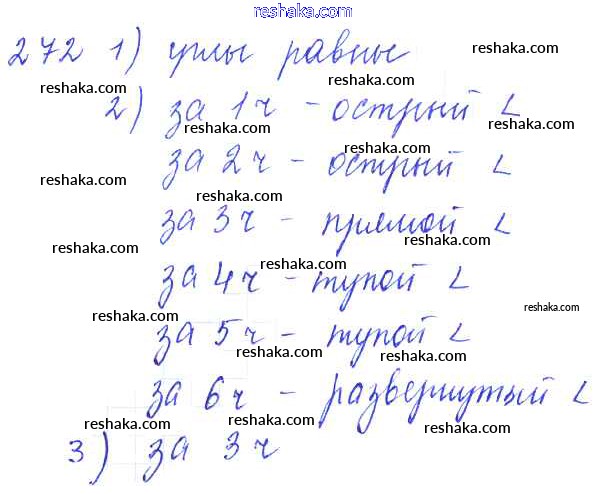 reshaka.com
272 1) углы равные reshaka.com
reshaka.com reshaka.com
2) за 1ч - острый ∠
reshaka.com reshaka.com
за 2ч - острый ∠
reshaka.com reshaka.com reshaka.com
за 3ч - прямой ∠
reshaka.com reshaka.com
за 4ч - тупой ∠
reshaka.com reshaka.com reshaka.com
за 5ч - тупой ∠
reshaka.com reshaka.com
за 6ч - развернутый ∠
reshaka.com reshaka.com reshaka.com
3) за 3ч
reshaka.com reshaka.com